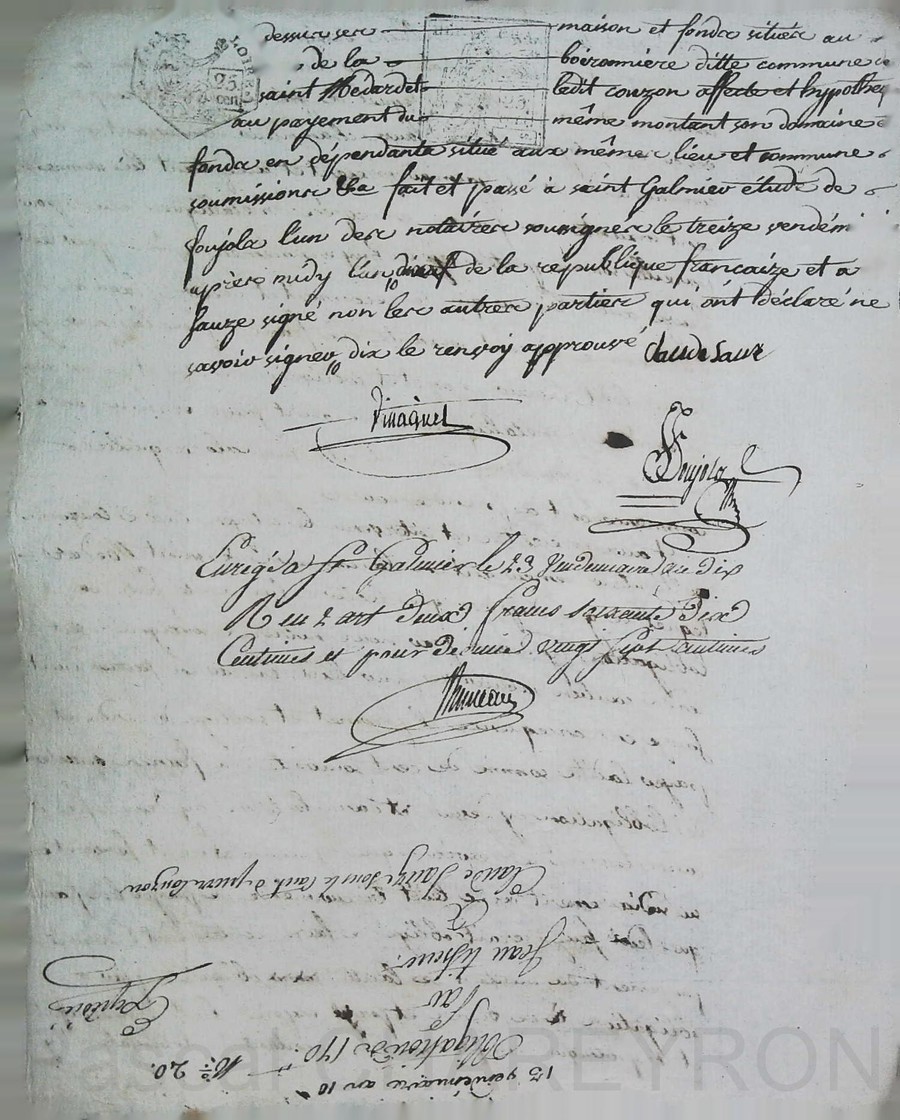 dessus ses maison et fonds situés au
de la boironniere ditte commune de
saint Medard et ledit couzon affecte et hypothe
au payement du même montant son domaine
fonds en dépendants situé aux même lieu et commune
soumissions &a fait et passé à saint Galmier étude de
foujols l'un des notaires soussignés le treize vendém
après midy l'an dix de la republique francaize et a
Sauze signé non les autres parties qui ont déclaré ne
savoir signer dix le renvoy approuvé claude Sauze
Vinagnet
Foujols
Enrigé a St Galmier le 23 Vendemiaire an dix
R deux francs soixante dix
Centimes et pour décime vingt sept centimes
13 vendémiaire an 10
Obligation de 170
Par
Jean
a
Claude Sauze sous le caut. de pierre Couzon
Expédié
25
cen
CHEYRON